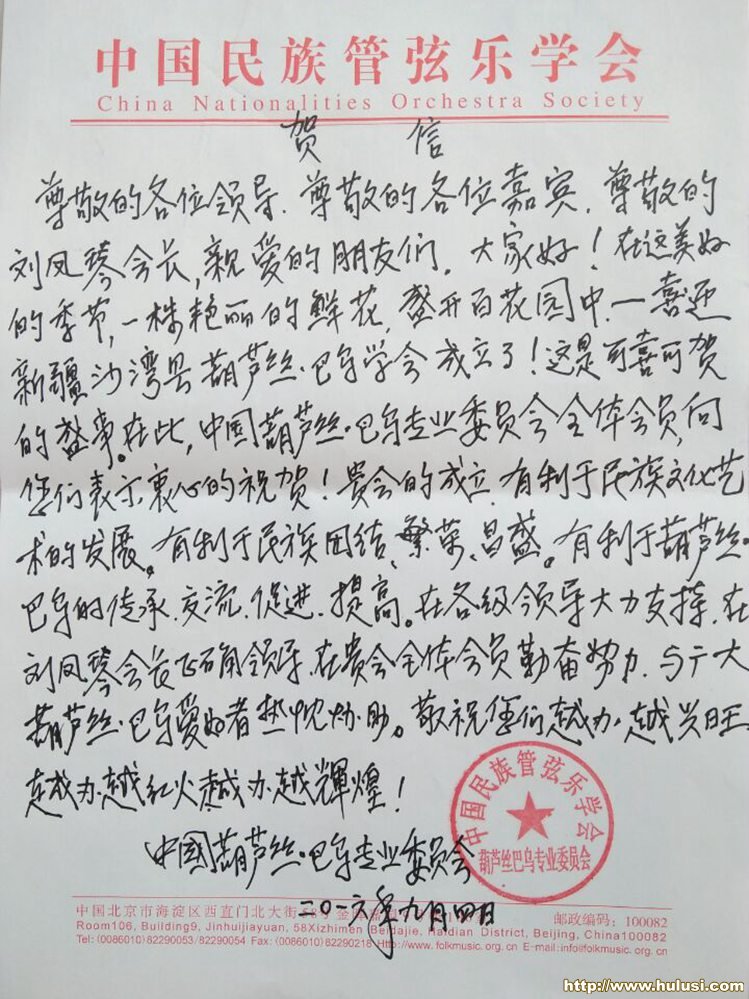 中国民族管弦乐学会
China Nationalities Orchestra Society
贺信
尊敬的各位领导、尊敬的各位嘉宾、尊敬的
刘凤琴会长,亲爱的朋友们。大家好!在这美好
的季节,一株艳丽的鲜花,盛开百花园中,一喜迎
新疆沙湾县葫芦丝·巴乌学会成立了!这是可喜可贺
的盛事。在此,中国葫芦丝·巴乌专业委员会全体会员,向
您们表示衷心的祝贺!贵会的成立,有利于民族文化艺
术的发展。有利于民族团结、繁荣、昌盛。有利于葫芦丝·
巴乌的传承、交流、促进、提高。在各级领导大力支持,在
刘凤琴会长正确领导,在贵会全体会员勤奋努力,与广大
葫芦丝·巴乌爱好者热忱协助。敬祝您们越办越兴旺
越办越红火越办越輝煌!
中國葫芦丝·巴乌专业委员会
二〇一六年九月四日
中国民族管弦乐学会
葫芦丝巴乌专业委员会
中国北京市海淀区西直门北大街 邮政编码:100082
Room106, Building9, Jinhuijiayuan, 58Xizhimen Beidajie, Haidian District, Beijing, China100082
Tel: (0086010) 82290053/82290054 Fax: (0086010) 82290218 Http://www.folkmusic.org.cn E-mail:info@folkmusic.org.cn
http://www.hulusi.com